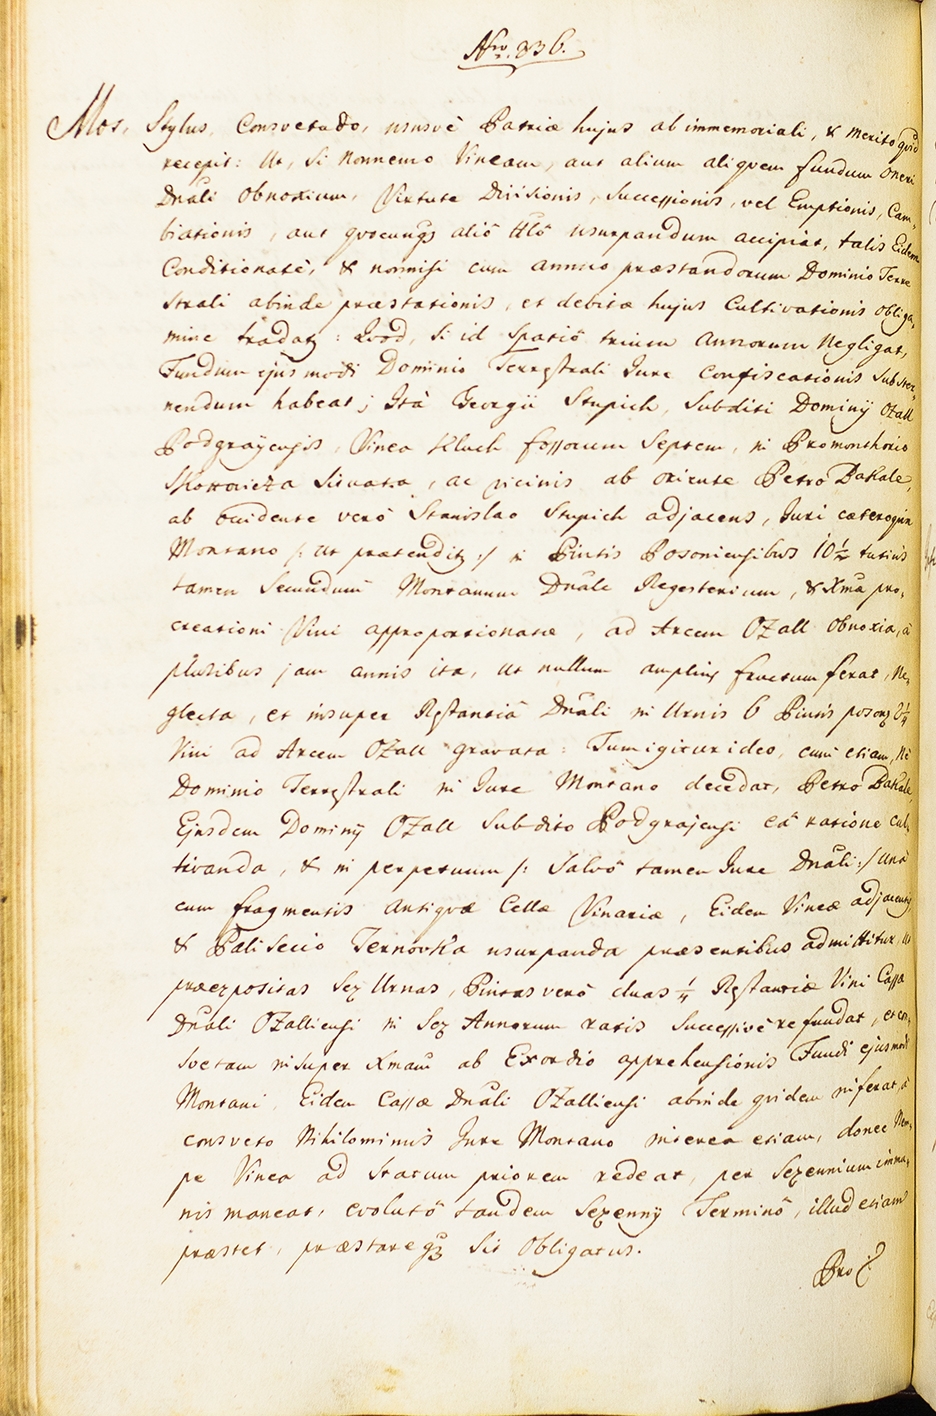 Nro. 836.
Mos, Stylus, Consvetudo, ususvè Patriæ hujus ab immemoriali, & merito qvid
recepit: Ut, si nonnemo Vineam, aut alium aliqvem fundum Oneri
Dnāli obnoxium, Virtute Divisionis, Successionis, vel Emptionis, Cam,
biationis, aut qvocunqs aliô ttlô usurpandum accipiat, talis Eidem
Conditionatè, & nonnisi cum annuo præstandorum Dominio Terre
strali abinde præstationis, et debitæ hujus Cultivationis obliga,
mine tradatz: Qvod, si id Spatiô trium Annorum Negligat,
Fundum ejusmodi Dominio Terrestrali Jure Confiscationis subster,
nendum habeat; Ità Georgii Stupich, Subditi Dominÿ Ozall
Podgrajensis, Vinea Kluch fossorum Septem, in Promonthorio
Situata, ac vicinis ab oriente Petro Dakale,
ab occidente verò Stanislao Stupich adjacens, Juri cæteroqvin
Montano /: ut prætenditz :/ in Pintis Posoniensibus 10 1/2 tutius
tamen Secundum Montanum Dnāle Regesterium, & Xmā pro,
creationi Vini approportionatæ, ad Arcem Ozall obnoxia, à
pluribus jam annis ita, ut nullum amplius fructum ferat, Ne,
glecta, et insuper Restantiâ Dnāli in Urnis 6 Pintis posonz 2 1/4
Vini ad Arcem Ozall gravata: Tum igitur ideo, cum etiam, Nè
Dominio Terrestrali in Jure Montano decedat, Petro Dakale,
Ejusdem Dominÿ Ozall Subdito Podgrajensi eâ ratione cul,
tivanda, & in perpetuum /: Salvô tamen Jure Dnāli :/ unà
cum fragmentis antiqvæ Cellæ Vinariæ, Eidem Vineæ adjacentis,
& Palisecio Ternovka usurpanda præsentibus admittitur, ut
præexpositas Sex Urnas, Pintas verò duas 1/4 Restantiæ Vini Cassæ
Dnāli Ozalliensi in Sex Annorum ratis Successivè refundat, et con,
svetam insuper Xmam ab Exordio apprehensionis Fundi ejusmodi
Montani Eidem Cassæ Dnāli Ozalliensi abinde qvidem inferat, à
consveto Nihilominus Jure Montano interea etiam, donec Nem,
pe Vinea ad Statum priorem redeat, per Sexennium immu,
nis maneat, evolutô tandem Sexennÿ Terminô, illud etiam
præstet, præstareqz sit obligatus.
Pro